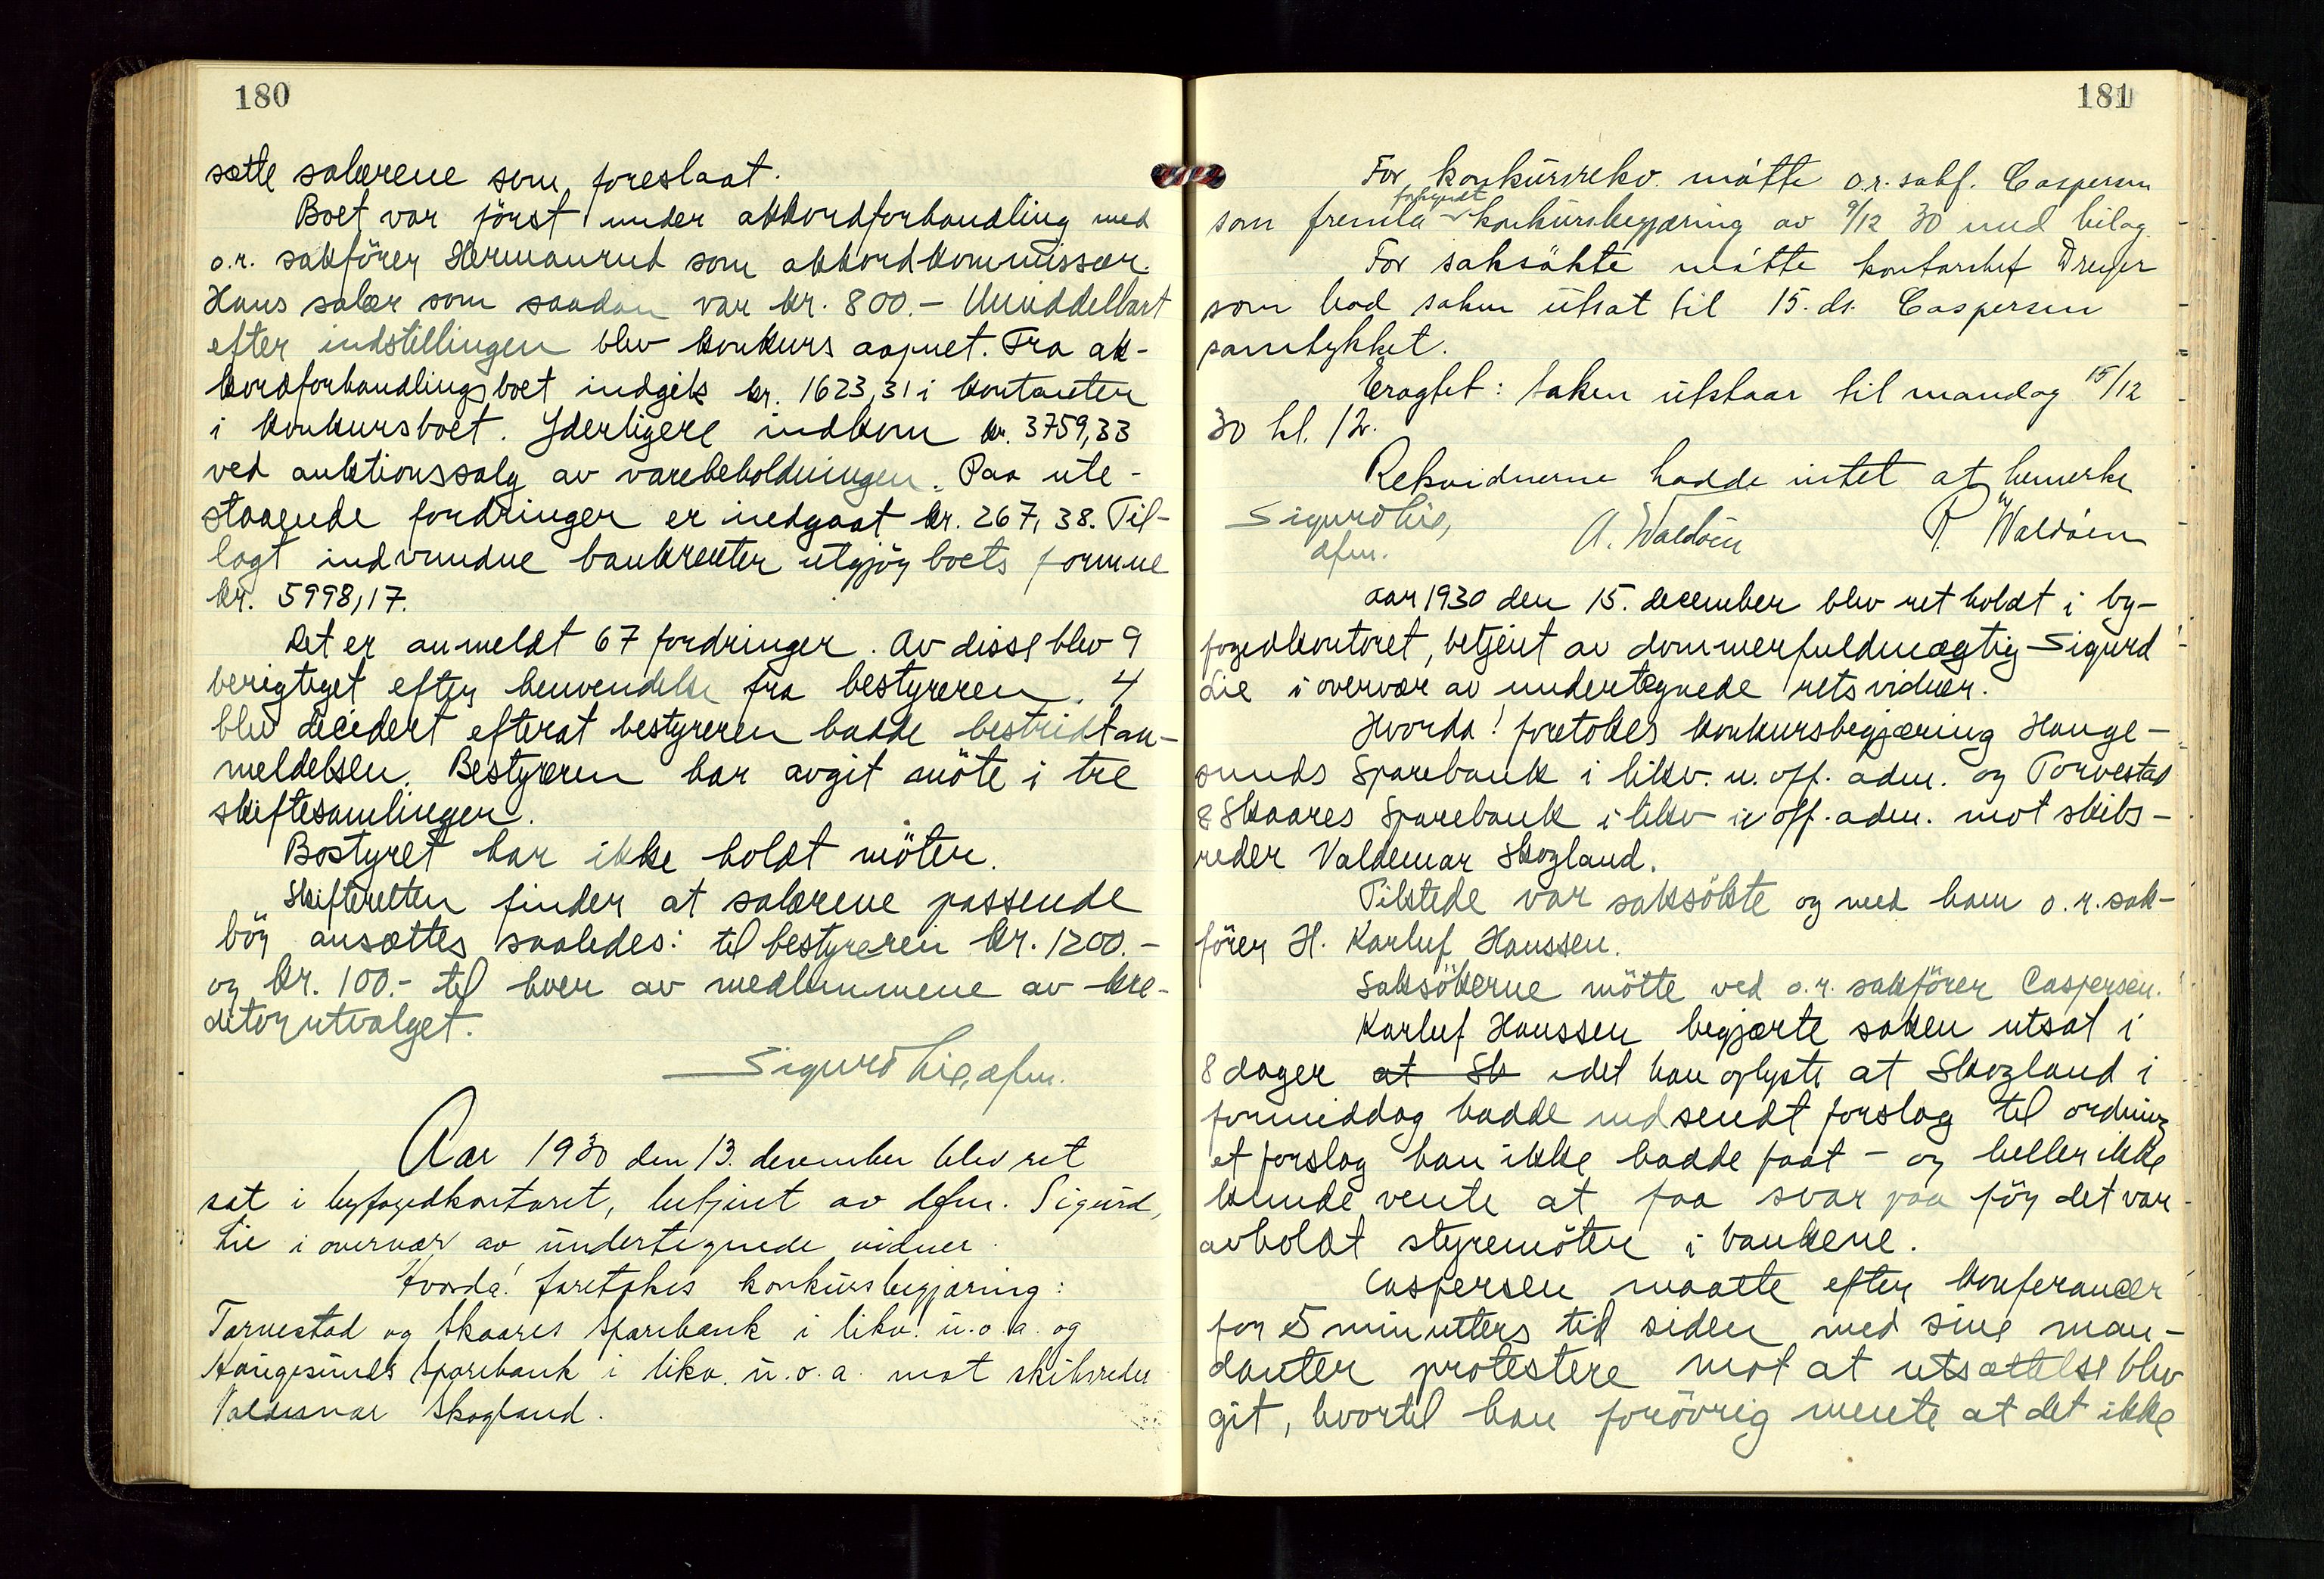 180
sætte salærene som foreslaat.
Boet var först under akkordforhandling med
o.r. sakförer Hermanrud som akkordkommissær.
Hans salær som saadan var kr. 800.- Umiddelbart
efter indstillingen blev konkurs aapnet. Fra ak-
kordforhandlingsboet indgik kr. 1623,31 i kontanter
i konkursboet. Yderligere indkom kr. 3759,33
ved auktionssalg av varebeholdningen. Paa ute-
staaende fordringer er indgaat kr. 267,38. Til-
lagt indvundne bankrenter utgjör boets formue
kr. 5998,17.
Det er anmeldt 67 fordringer. Av disse blev 9
berigtiget efter henvendelse fra bestyreren. 4
blev decidert efterat bestyreren hadde bestridt an-
meldelsen. Bestyreren har avgit möte i tre
skiftesamlinger.
Bostyret har ikke holdt möter.
Skifteretten finder at salærene passende
bör ansættes saaledes: til bestyreren kr. 1200.-
og kr. 100.- til hver av medlemmene av kre-
ditorutvalget.
Sigurd Lie, dfm.
Aar 1930 den 13. desember blev ret
sat i byfogedkontoret, betjent av dfm. Sigurd
Lie i overvær av undertegnede vidner.
Hvorda! foretokes konkursbegjæring:
Torvestad og Skaares Sparebank i likv. u.o.a. og
Haugesunds Sparebank i likv. u.o.a. mot skibsreder
Valdemar Skogland.
181
For konkursrekv. mötte o.r. sakf. Caspersen
forkyndt
som fremla konkursbegjæring av 9/12 30 med bilag.
For saksökte mötte kontorchef Dreyer
som bad saken utsat til 15. ds. Caspersen
samtykket.
Eragtet: Saken utstaar til mandag 15/12
30 kl. 12.
Rekvidnerne hadde intet at bemerke
Sigurd Lie,
dfm.
A. Waldöen
R. Waldöen
Aar 1930 den 15. december blev ret holdt i by-
fogedkontoret, betjent av dommerfuldmægtig Sigurd
Lie i overvær av undertegnede retsvidner.
Hvorda! foretokes konkursbegjæring Hauge-
sunds Sparebank i likv. u. off. adm. og Torvestad
& Skaares Sparebank i likv u off. adm. mot skibs-
reder Valdemar Skogland.
Tilstede var saksökte og med ham o.r. sak-
förer H. Karluf Hanssen.
Saksökerne mötte ved o.r. sakförer Caspersen.
Karluf Hanssen begjærte saken utsat i
8 dager at Sk idet han oplyste at Skogland i
formiddag hadde indsendt forslag til ordning
et forslag han ikke hadde faat - og heller ikke
kunde vente at faa svar paa för det var
avholdt styremöter i bankene.
Caspersen maatte efter konferancer
for 5 minutters tid siden med sine man-
danter protestere mot at utsættelse blev
git, hvortil han forövrig mente at det ikke